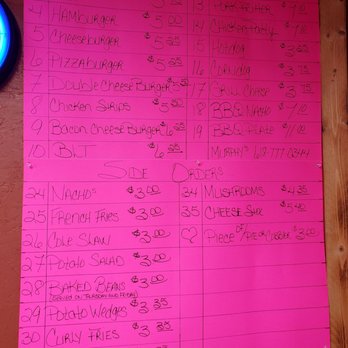 4 Hamburger $5.00
5 Cheeseburger $5.25
6 Pizzaburger $5.25
7 Double Cheese Burger
8 Chicken Strips $5.00
9 Bacon Cheese Burger $6.25
10 BLT $6.25
13
14 Chicken Patty
15 Hotdog
16 Corndog $2.75
17 Grill Cheese $3.75
18 BBQ Nacho $7.00
19 BBQ Plate $11.00
Murphy's 617-777-0344
Side Orders
24 Nachos $3.00
25 French Fries $3.00
26 Cole Slaw $3.00
27 Potato Salad $3.00
28 Baked Beans $3.00
29 Potato Wedges $3.35
30 Curly Fries $3.35
34 Mushrooms $4.35
35 Cheese Stix $5.40
♡ Piece of $3.00